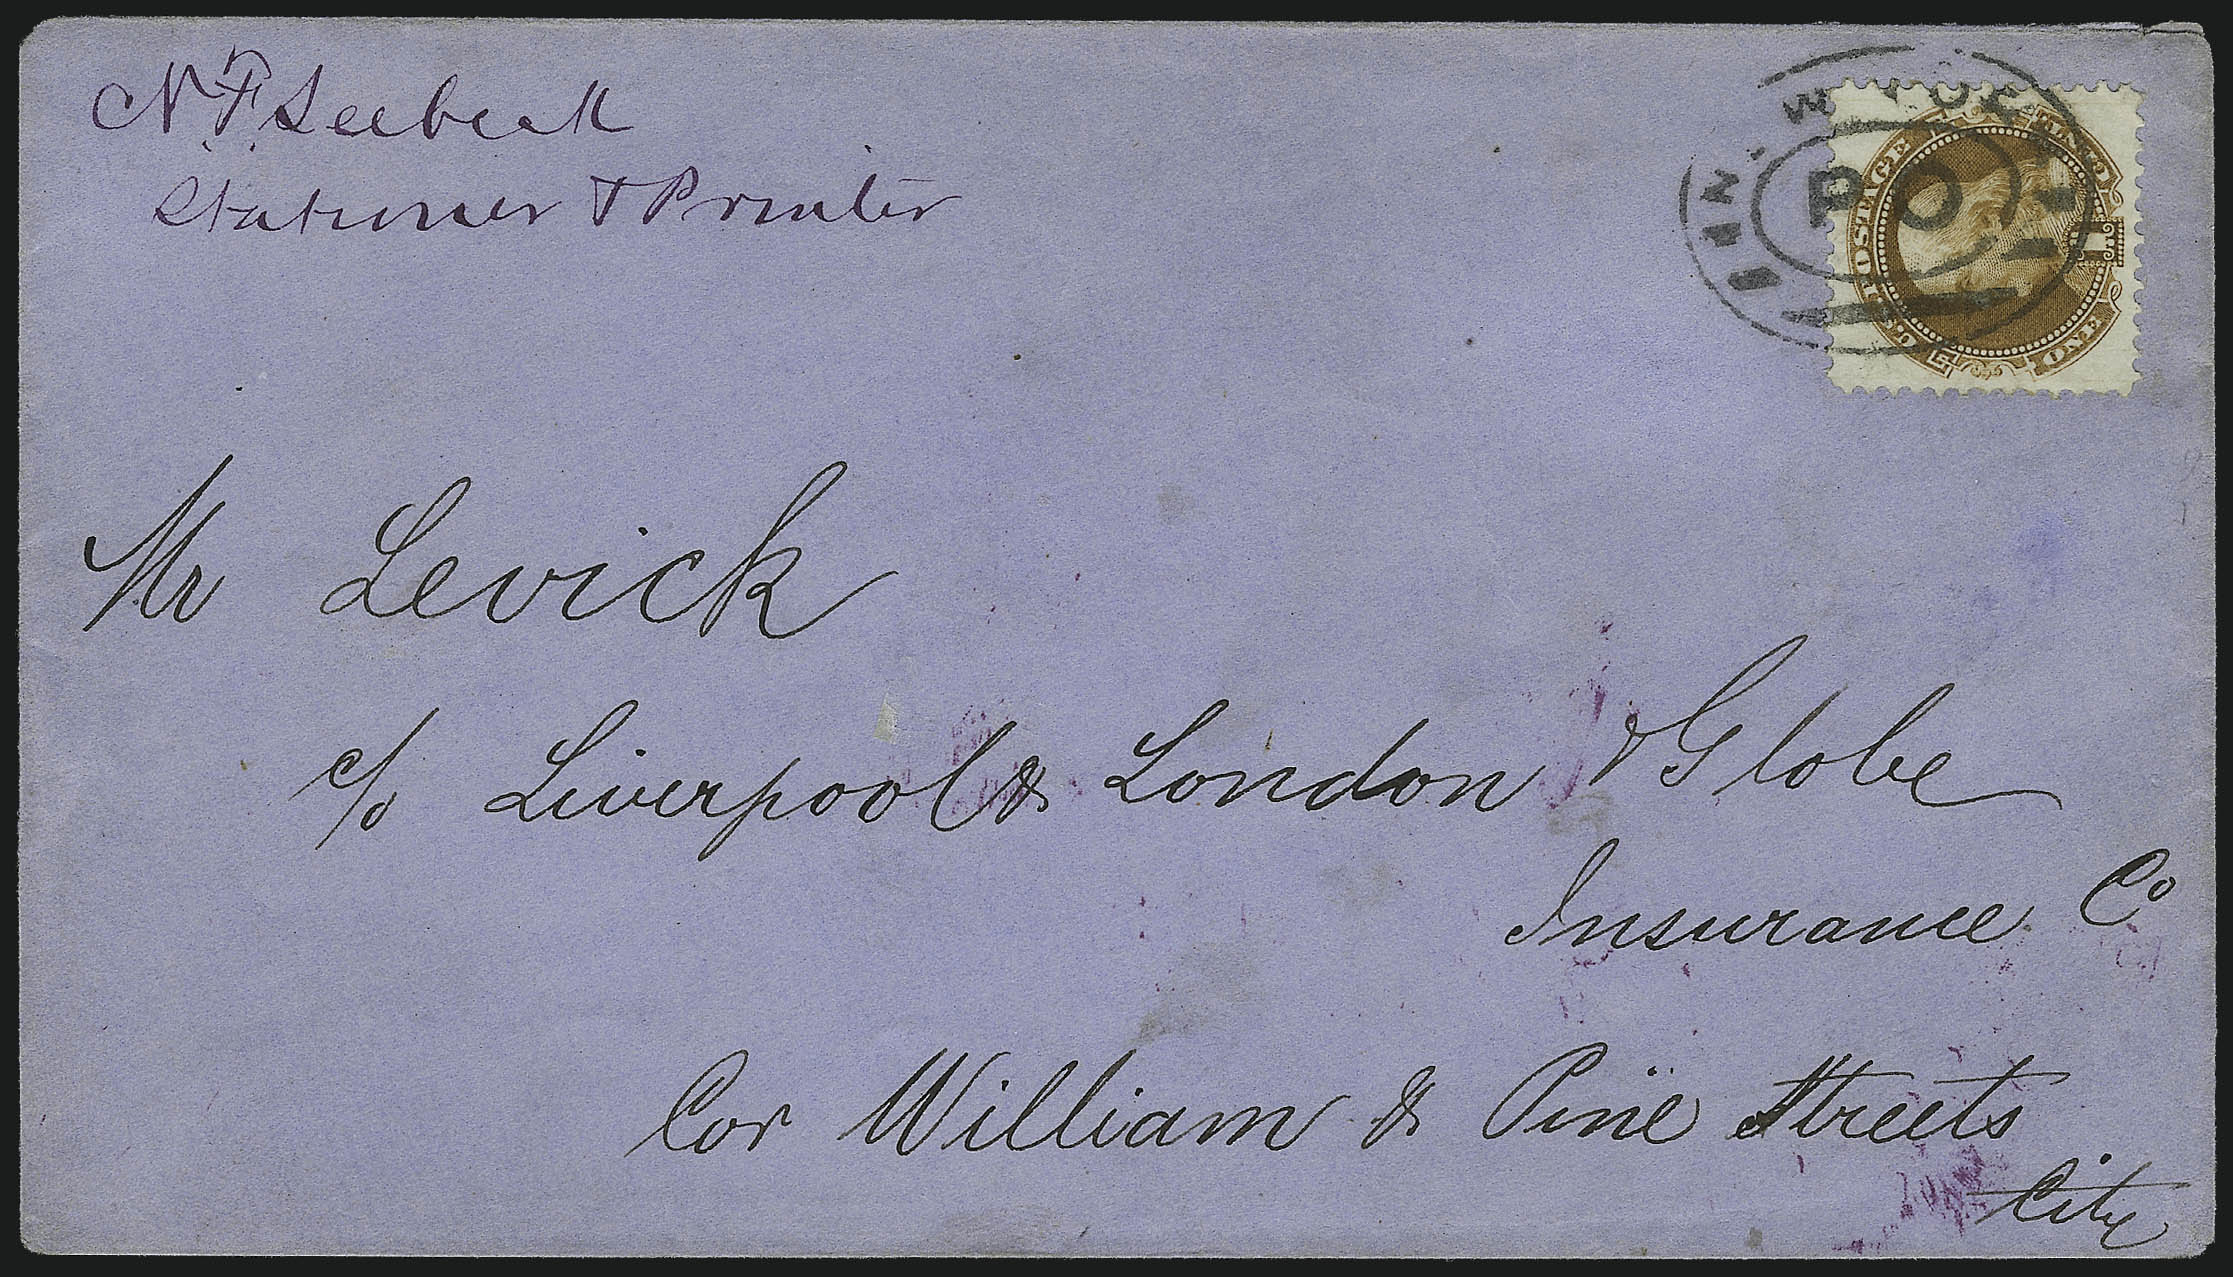 N. F. Seebeck
Stationer & Printer
NEW YORK
P O
U.S. POSTAGE
ONE CENT
1
Mr Levick
c/o Liverpool & London & Globe
Insurance Co
Cor William & Pine Streets
City